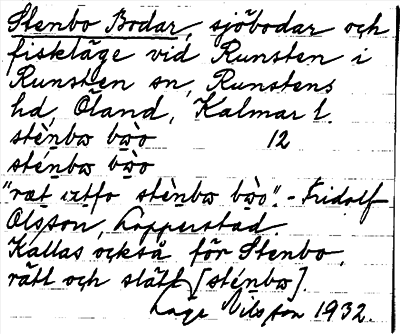 Stenbo Bodar, sjöbodar och
fiskläge vid Runsten i
Runsten sn, Runstens
hd, Öland, Kalmar l.
stènbω bὼo 12
sténbω bὼo
"ræt ıztfo stènbω bὼo". - Fridolf
Olsson, Lopperstad
Kallas också för Stenbo,
rätt och slätt [sténbω].
Lage Nilsson 1932.